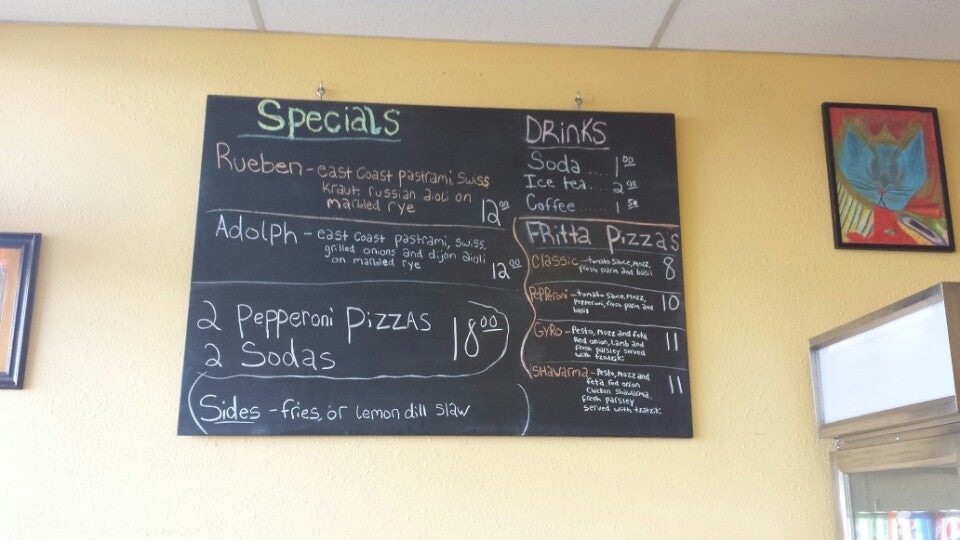 Specials
Rueben - east coast pastrami, Swiss
kraut russian aioli on
marbled rye 12.00
Adolph - east coast pastrami, swiss,
grilled onions and dijon aioli
on marbled rye 12.00
2 Pepperoni Pizzas
2 Sodas 18.00
Sides - fries, or lemon dill slaw
Drinks
Soda .... 1.00
Ice tea.... 2.00
Coffee ...... 1.50
Fritta Pizzas
Classic - tomato sauce, mozz,
fresh parm and basil 8
Pepperoni - tomato sauce, mozz,
pepperoni, fresh parm and
basil 10
Gyro - Pesto, mozz and feta
Red onion, lamb and
fresh parsley served
with tzatziki 11
Shawarma - Pesto, mozz and
feta red onion
chicken shawarma
fresh parsley
served with tzatzik 11